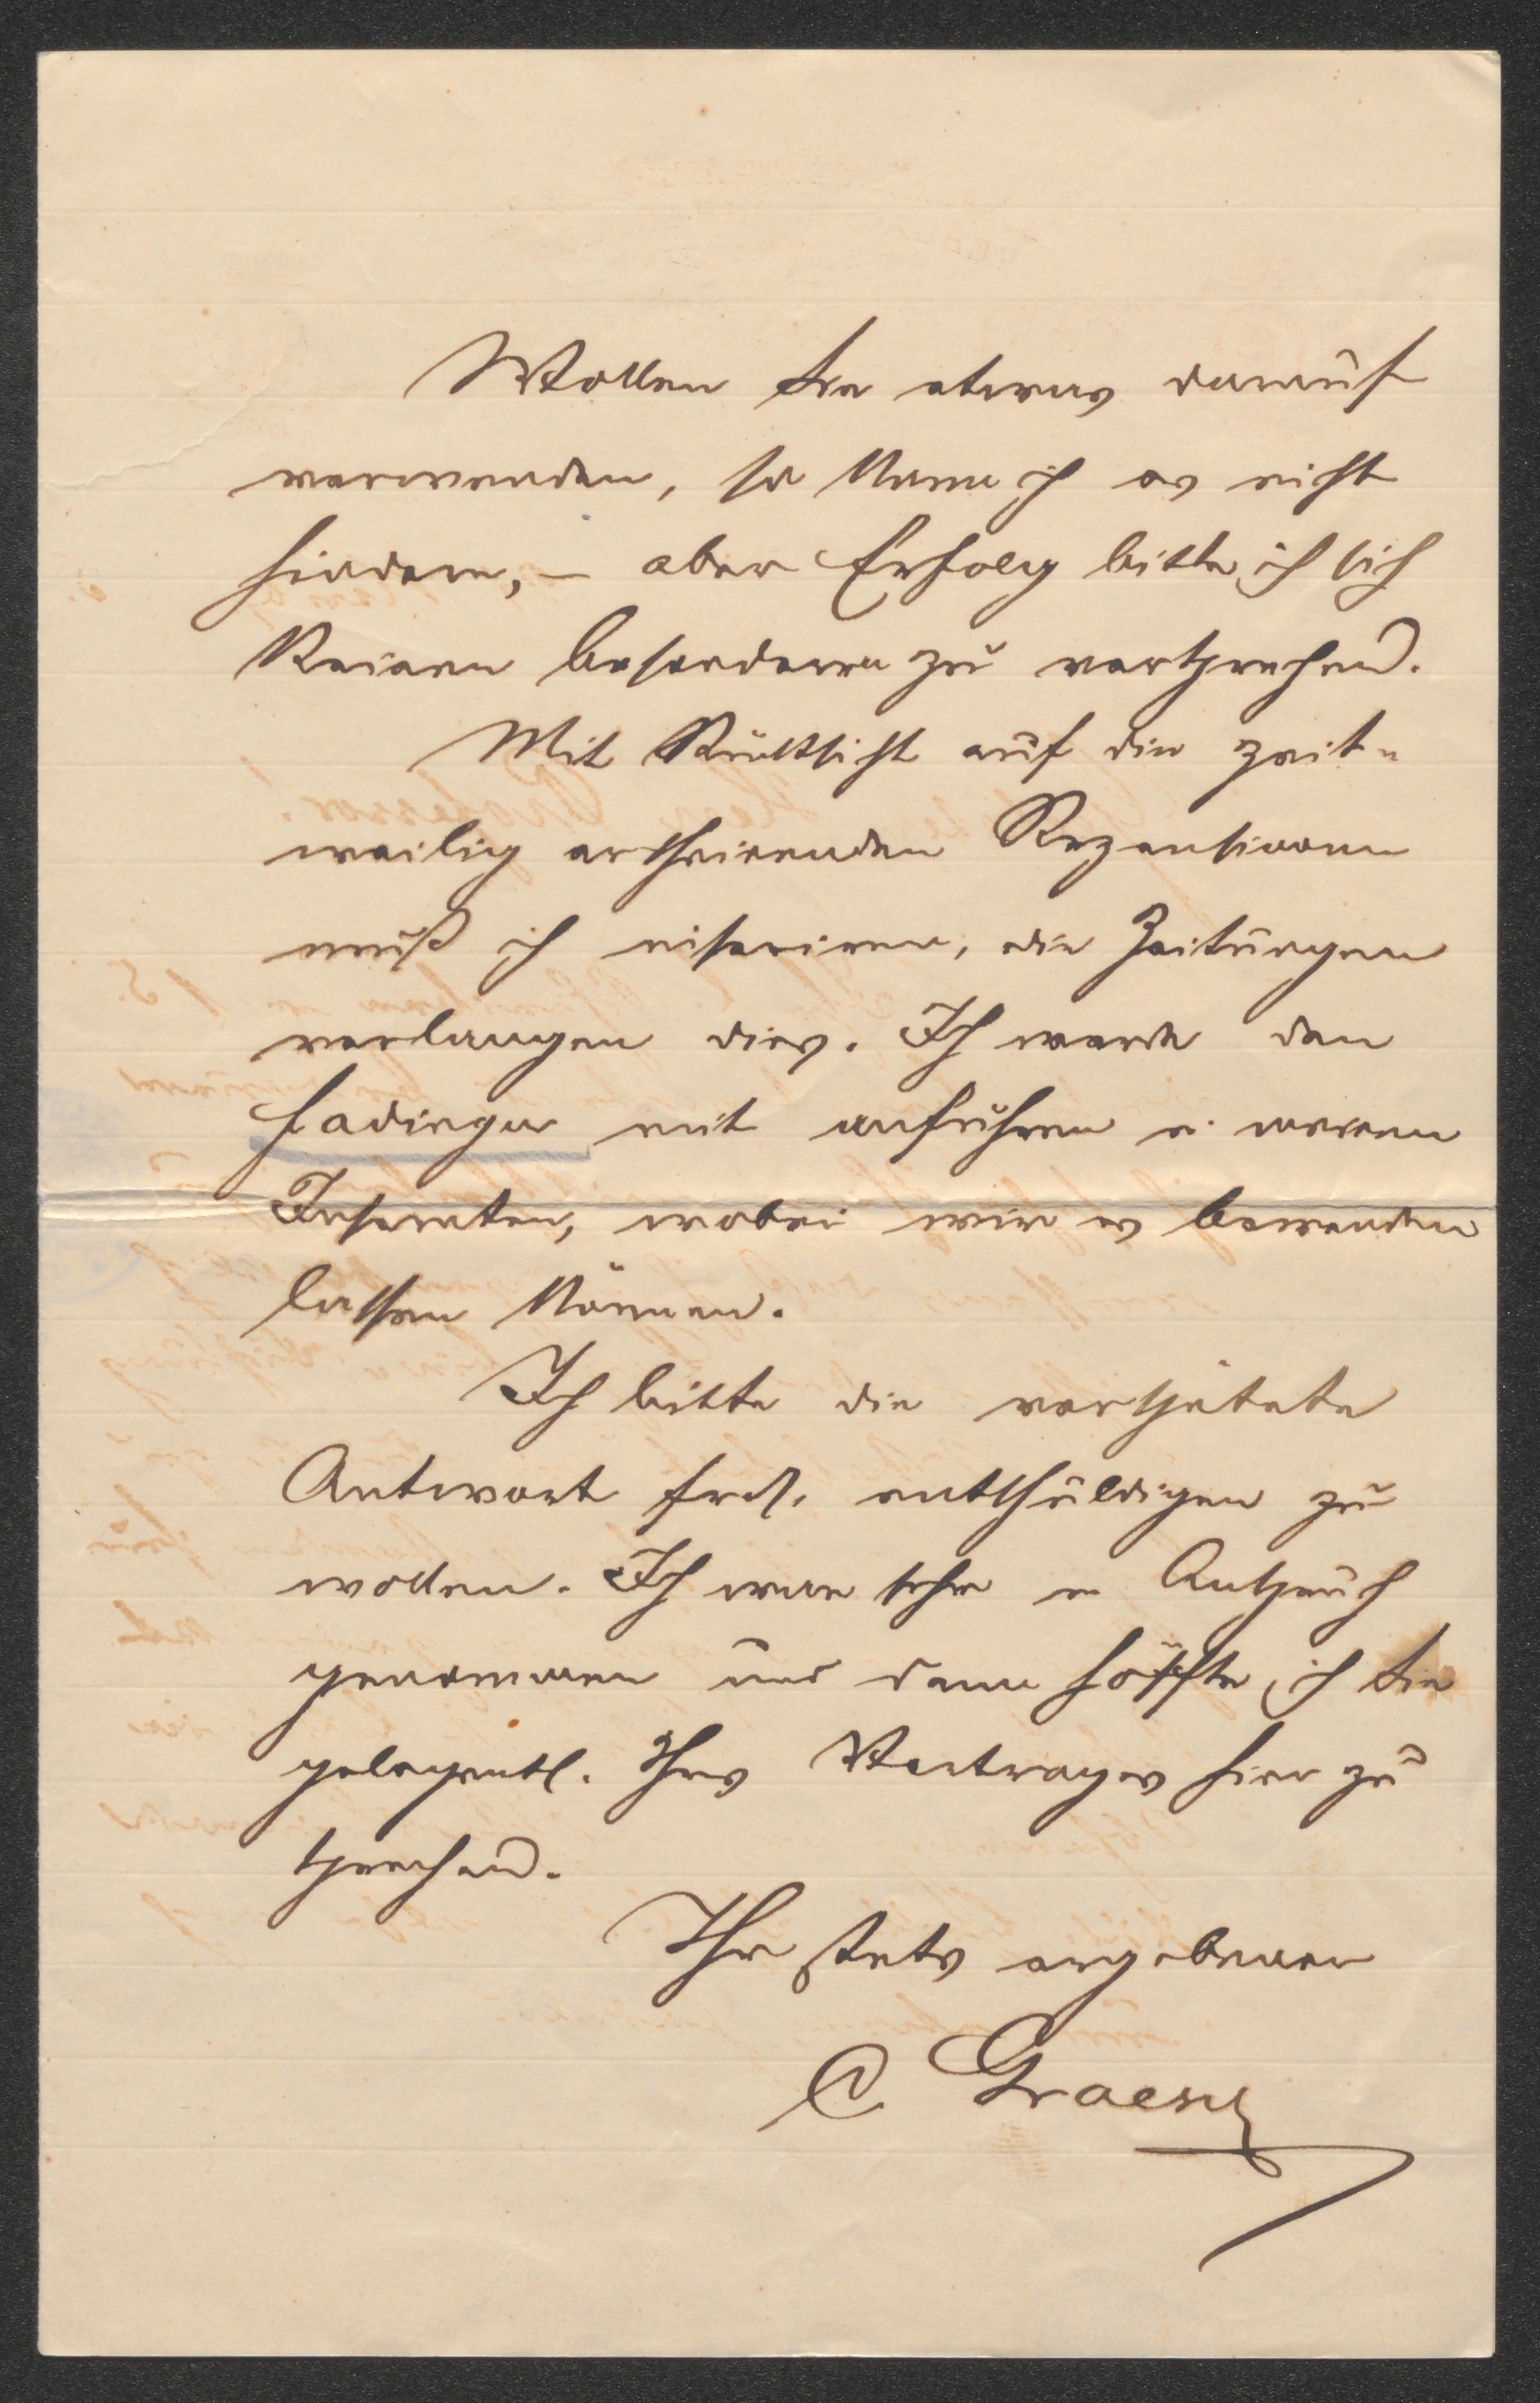 Wollen Sie etwas darauf
verwenden, so kann ich es nicht
hindern, – aber Erfolg bitte ich sich
keinen besonderen zu versprechen.
Mit Rücksicht auf die zeit-
weilig erscheinenden Rezensionen
muß ich inseriren, die Zeitungen
verlangen dies. Ich werde den
Fadinger mit anführen in meinen
Inseraten, wobei wir es bewenden
lassen können.
Ich bitte die verspätete
Antwort frdl. entschuldigen zu
wollen. Ich war sehr in Anspruch
genommen und dann hoffte ich Sie
gelegentl. Ihres Vortrages hier zu
sprechen.
Ihr stets ergebener
C. Graeser